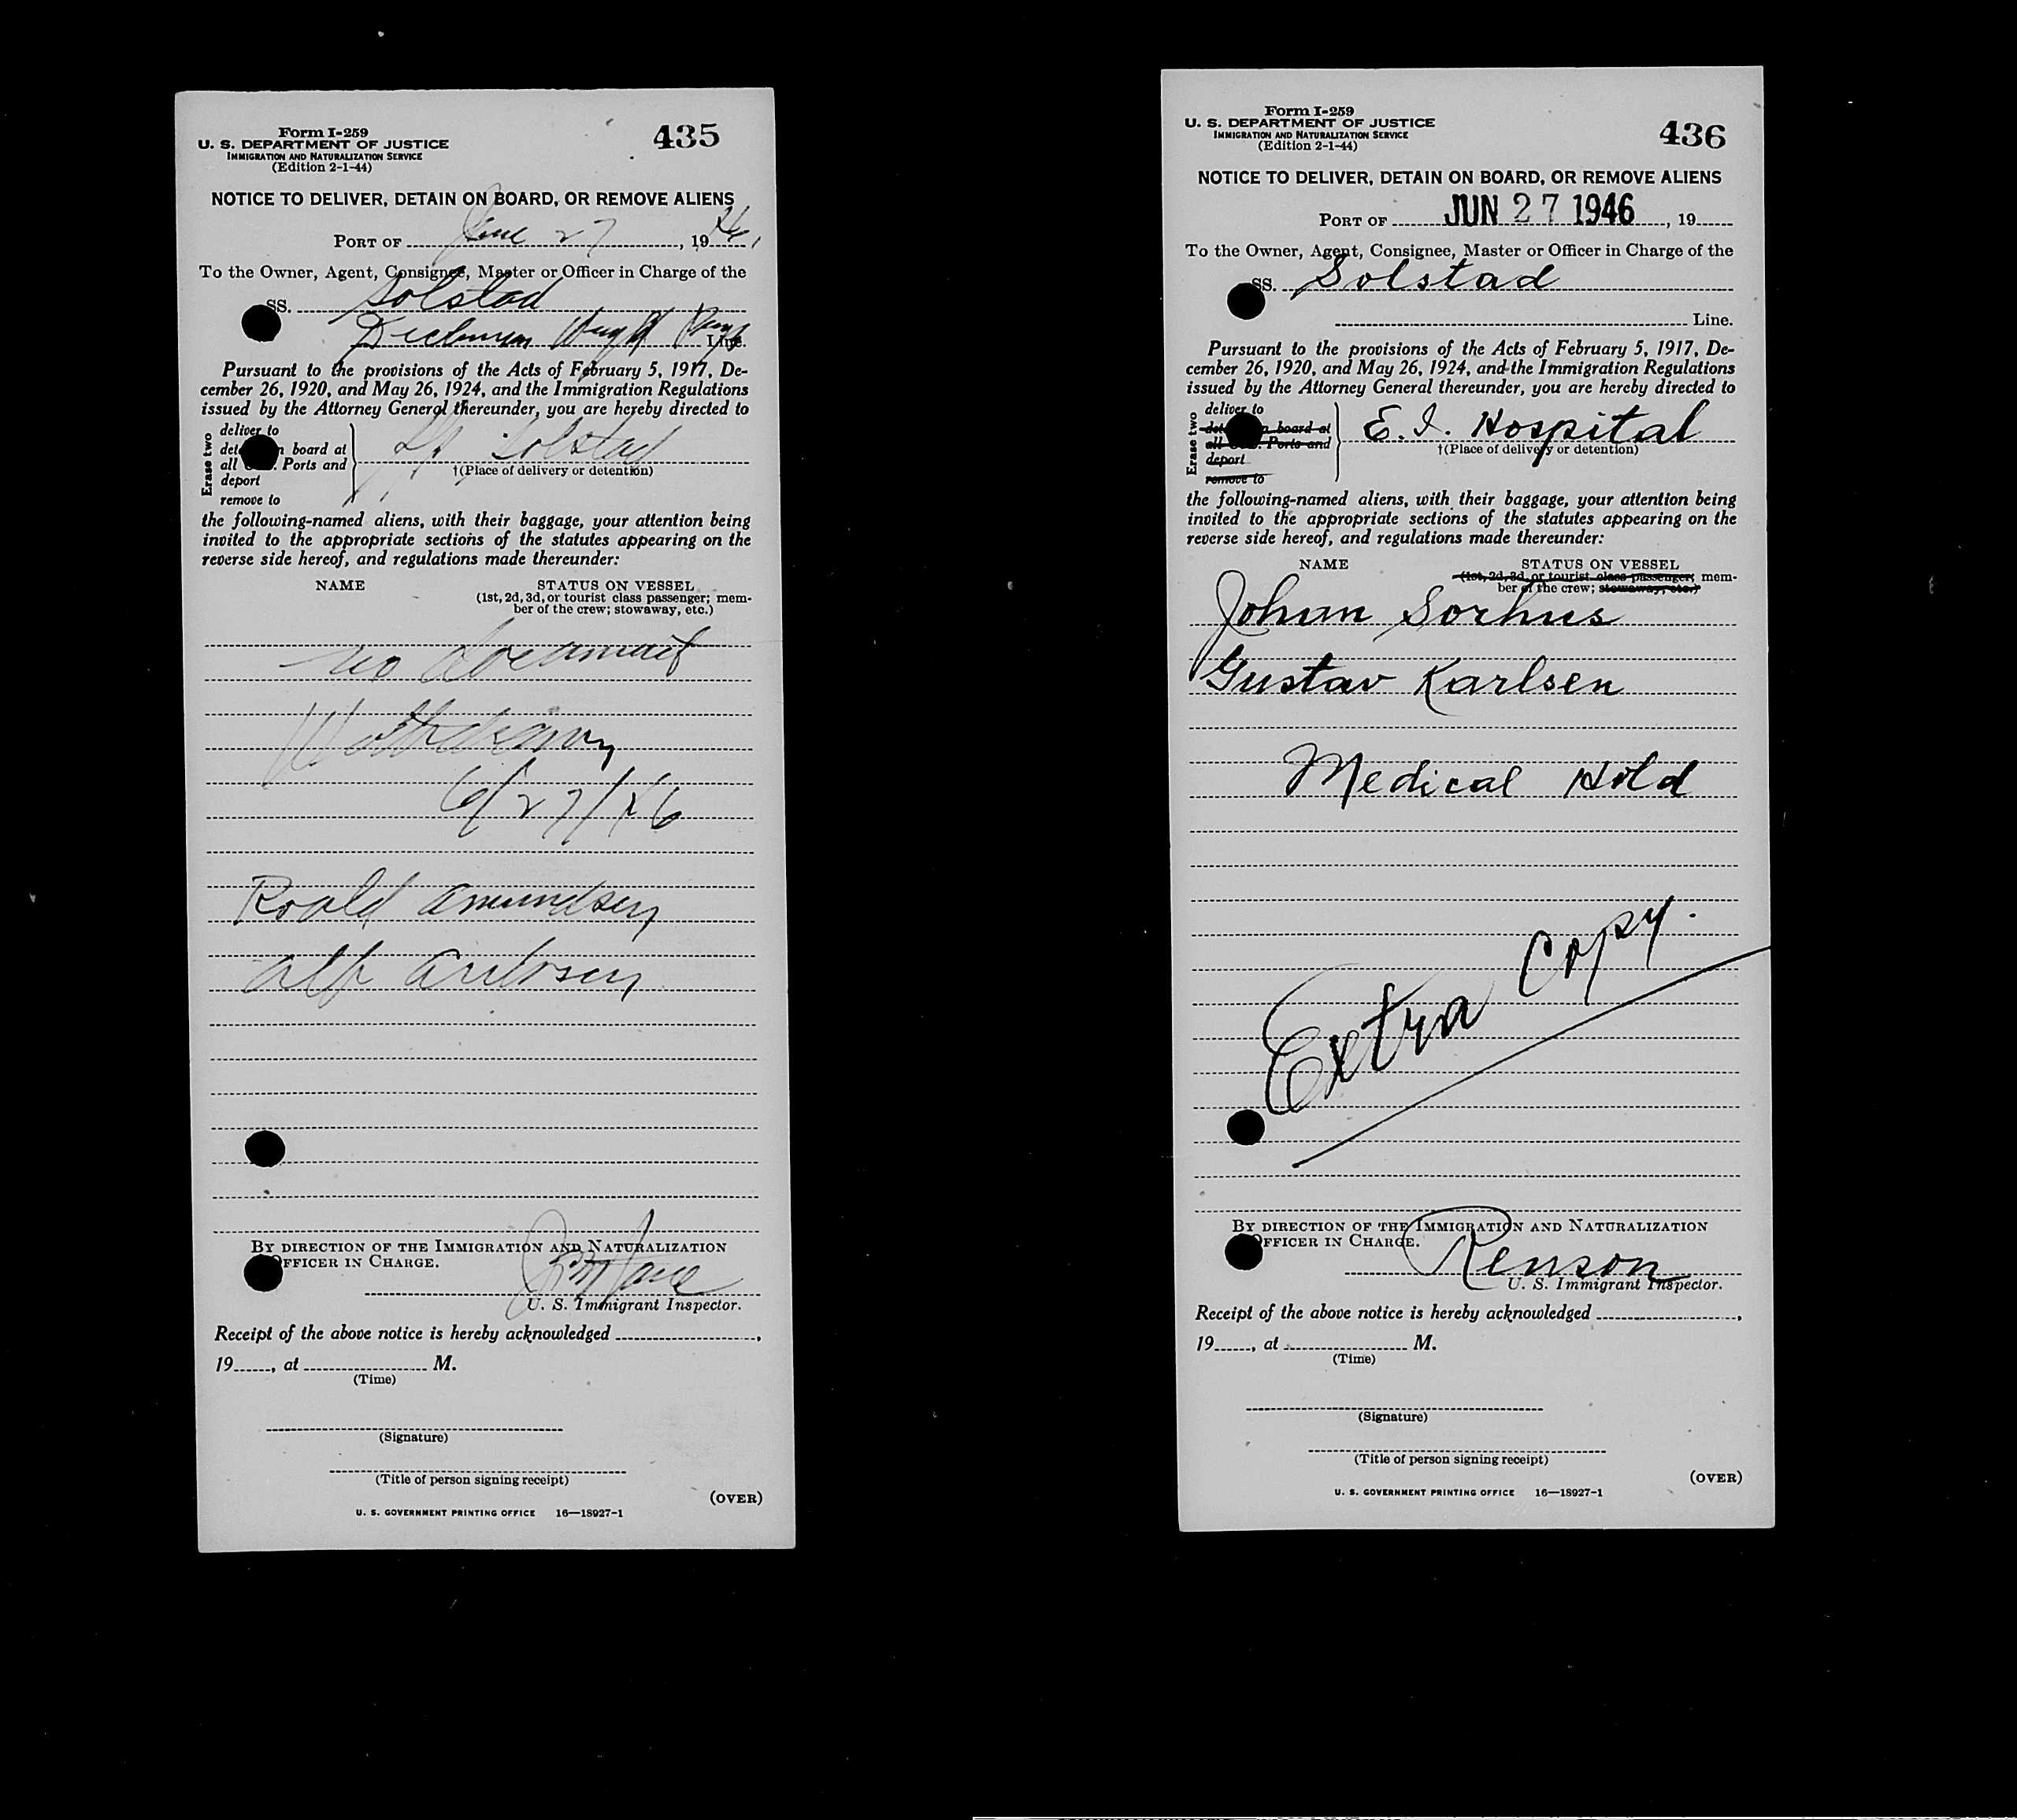 Form I-259
U. S. DEPARTMENT OF JUSTICE
IMMIGRATION AND NATURALIZATION SERVICE
(Edition 2-1-44)
435
NOTICE TO DELIVER, DETAIN ON BOARD, OR REMOVE ALIENS
PORT OF June 27, 1946,
To the Owner, Agent, Consignee, Master or Officer in Charge of the
SS. Solstad
Line.
Pursuant to the provisions of the Acts of February 5, 1917, De-
cember 26, 1920, and May 26, 1924, and the Immigration Regulations
issued by the Attorney General thereunder, you are hereby directed to
Erase two
deliver to
board at
all Ports and
deport
remove to
Solstad
†(Place of delivery or detention)
the following-named aliens, with their baggage, your attention being
invited to the appropriate sections of the statutes appearing on the
reverse side hereof, and regulations made thereunder:
NAME STATUS ON VESSEL
(1st, 2d, 3d, or tourist class passenger; mem-
ber of the crew; stowaway, etc.)
no document
Withdrawn
6/27/46
Roald Amundsen
Alf
BY DIRECTION OF THE IMMIGRATION AND NATURALIZATION
OFFICER IN CHARGE.
U. S. Immigrant Inspector.
Receipt of the above notice is hereby acknowledged ,
19 , at M.
(Time)
(Signature)
(Title of person signing receipt)
(OVER)
U. S. GOVERNMENT PRINTING OFFICE 16—18927-1
Form I-259
U. S. DEPARTMENT OF JUSTICE
IMMIGRATION AND NATURALIZATION SERVICE
(Edition 2-1-44)
436
NOTICE TO DELIVER, DETAIN ON BOARD, OR REMOVE ALIENS
PORT OF JUN 27 1946, 19
To the Owner, Agent, Consignee, Master or Officer in Charge of the
SS. Solstad
Line.
Pursuant to the provisions of the Acts of February 5, 1917, De-
cember 26, 1920, and May 26, 1924, and the Immigration Regulations
issued by the Attorney General thereunder, you are hereby directed to
Erase two
deliver to
board at
all Ports and
deport
remove to
E. I. Hospital
†(Place of delivery or detention)
the following-named aliens, with their baggage, your attention being
invited to the appropriate sections of the statutes appearing on the
reverse side hereof, and regulations made thereunder:
NAME STATUS ON VESSEL
(1st, 2d, 3d, or tourist class passenger; mem-
ber of the crew; stowaway, etc.)
Johan Sorhus
Gustav Karlsen
Medical Hold
Extra Copy.
BY DIRECTION OF THE IMMIGRATION AND NATURALIZATION
OFFICER IN CHARGE.
Renson
U. S. Immigrant Inspector.
Receipt of the above notice is hereby acknowledged ,
19 , at M.
(Time)
(Signature)
(Title of person signing receipt)
(OVER)
U. S. GOVERNMENT PRINTING OFFICE 16—18927-1